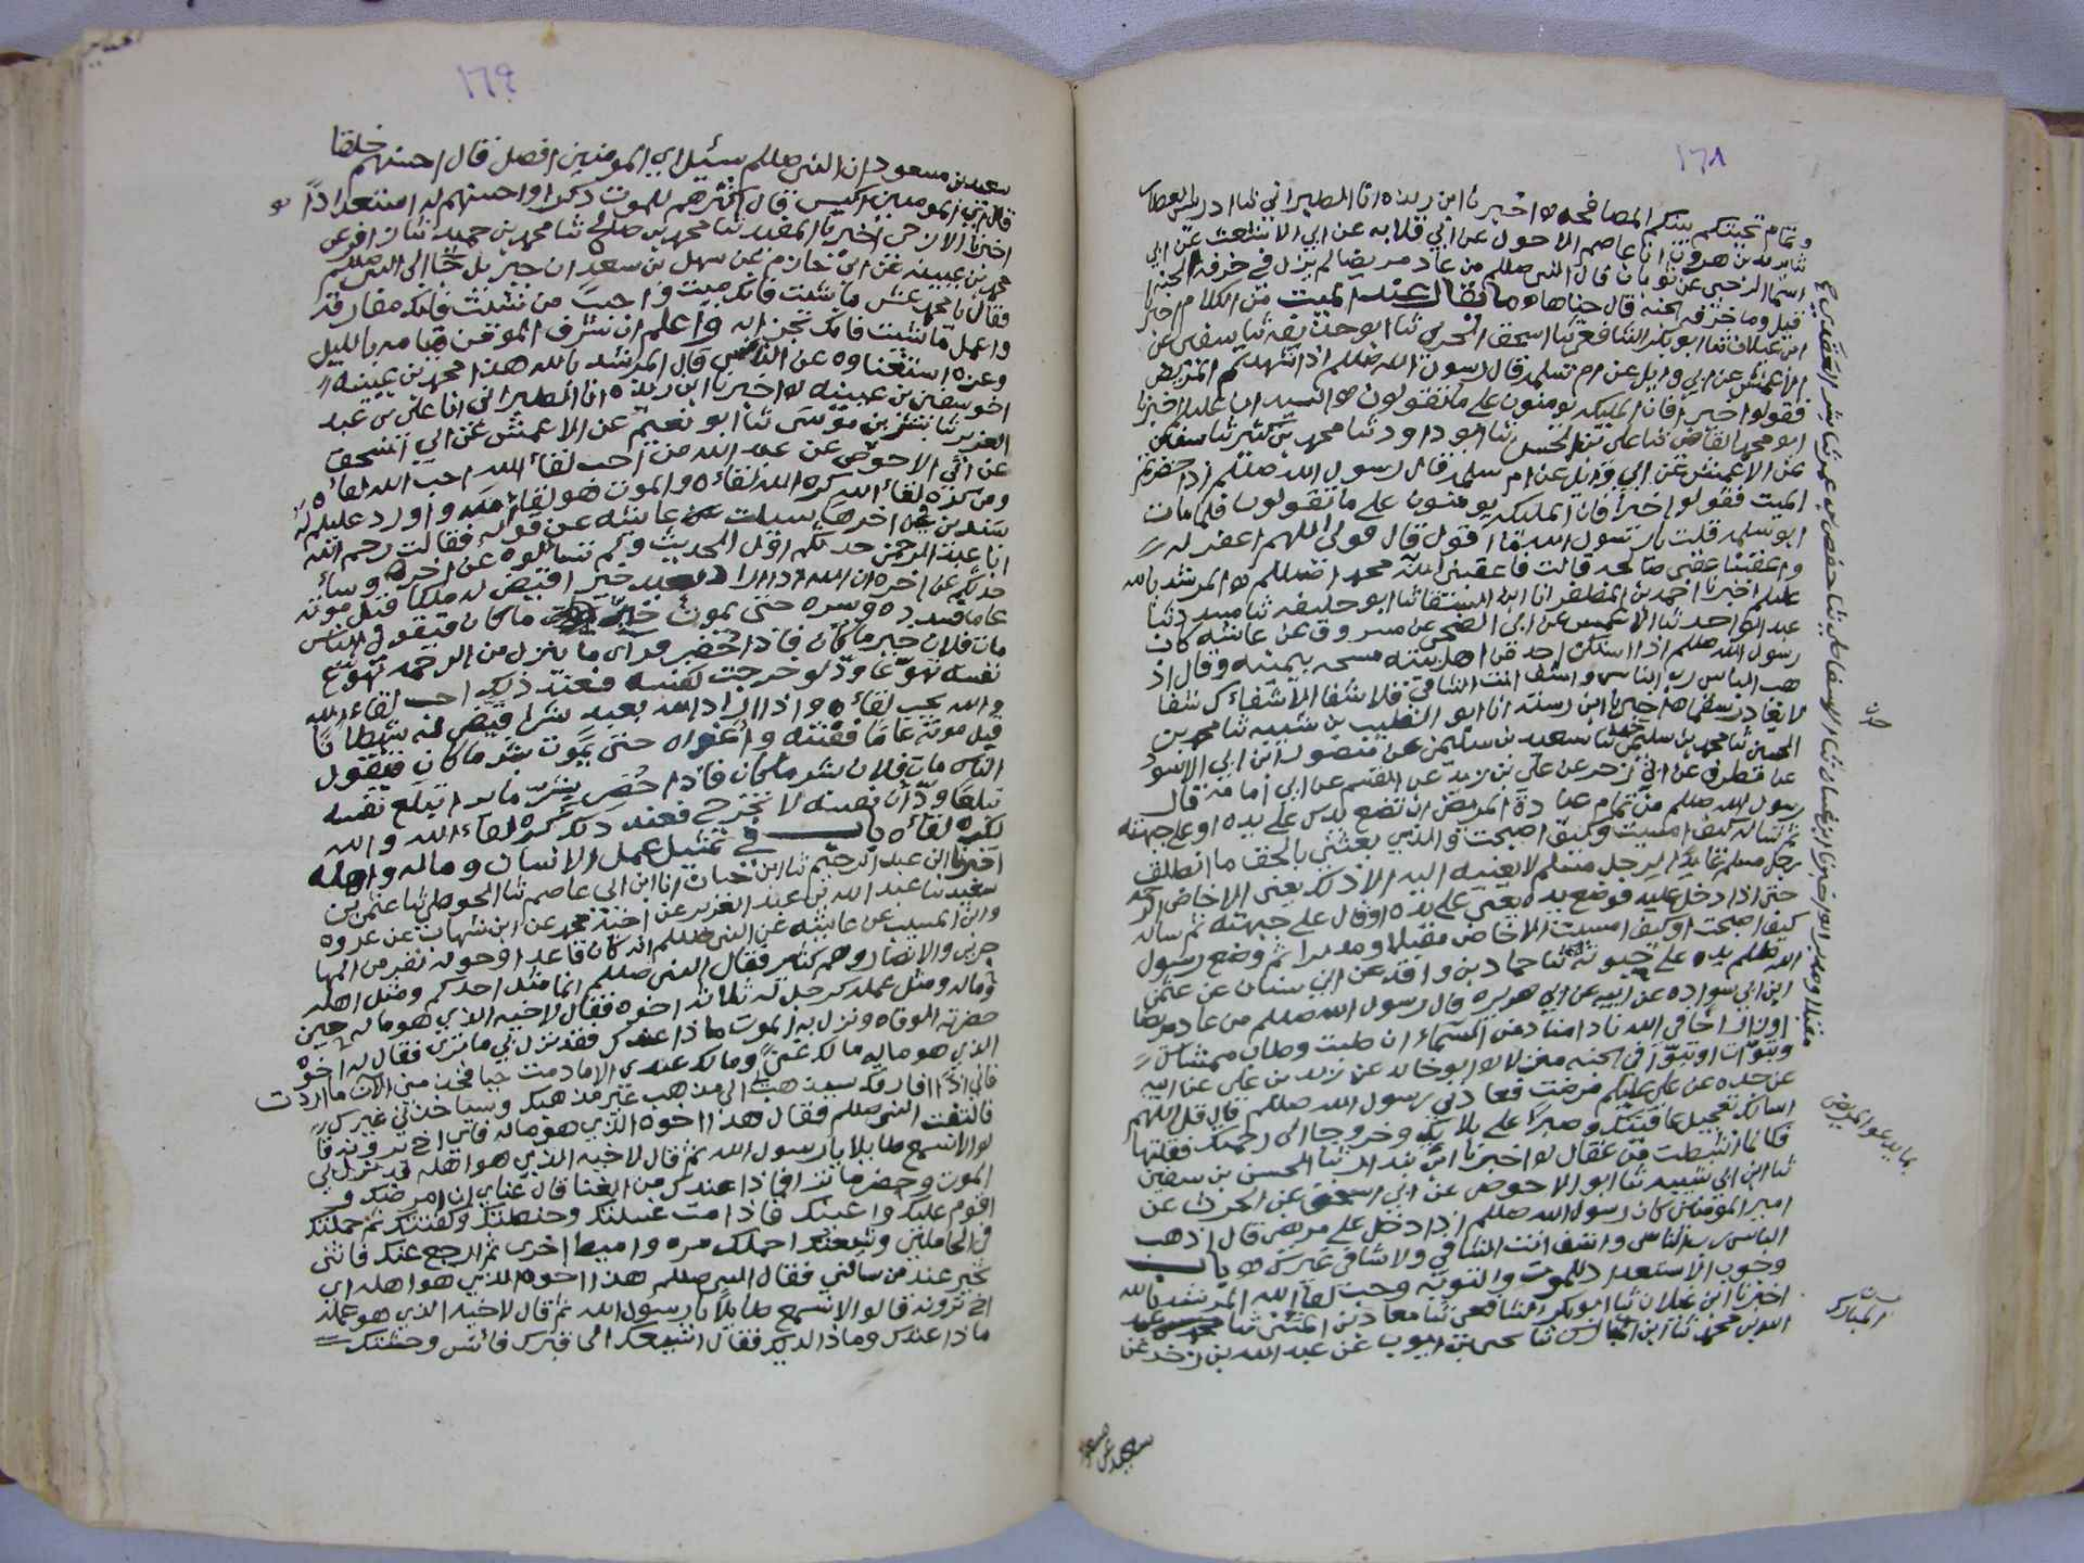 ١٦٨
وتمام تحيتكم بينكم المصافحه اخبرنا ابن ريذه انا الطبراني ثنا ادريس العطار
ثنا يزيد بن هرون انا عاصم الاحول عن ابي قلابه عن ابي الاشعث عن ابي
اسما الرحبي عن ثوبان قال النبي صللم من عاد مريضا لم يزل في خرفه الجنه
قيل وما خرفه الجنه قال جناها وما يقال عند الميت من الكلام اخبرنا
ابن غيلان ثنا ابو بكر الشافعي ثنا اسحق الحربي ثنا ابو حذيفه ثنا سفين عن
الاعمش عن ابي وايل عن ام سلمه قال رسول الله صللم اذا شهدتم المريض
فقولوا خيرا فان المليكه يومنون على ما تقولون السيد ابا عليلم اخبرنا
ابو محمد القاضي ثنا علي بن الحسن ثنا ابو داود ثنا محمد بن كثير ثنا سفين
عن الاعمش عن ابي وايل عن ام سلمه قال رسول الله صللم اذا حضرتم
الميت فقولوا خيرا فان المليكه يومنون على ما تقولون فلما مات
ابو سلمه قلت يا رسول الله ما اقول قال قولي اللهم اغفر له
واعقبنا عقبى صالحه قالت فاعقبني الله محمدا صللم المرشد بالله
عليلم اخبرنا احمد بن المظفر انا ابن السقا ثنا ابو خليفه ثنا مسدد ثنا
عبد الواحد ثنا الاعمش عن ابي الضحى عن مسروق عن عايشه كان
رسول الله صللم اذا اشتكى احد من اهل بيته مسحه بيمينه وقال اذ
هب الباس رب الناس واشف انت الشافي فلا شفا الا شفاءك شفا
لا يغادر سقما اخبرنا ابن رسته انا ابو الخطيب بن شبيبه ثنا محمد بن
الحسين ثنا محمد بن سليمن ثنا سعيد بن سليمن عن منصور ابن ابي الاسود
عن مطرف عن ابي زحر عن علي بن يزيد عن القسم عن ابي امامه قال
رسول الله صللم من تمام عيادة المريض ان تضع يدك على يده او على جبهته
ثم تساله كيف امسيت وكيف اصبحت والذي بعثني بالحق ما انطلق
رجل مسلم عايدا الى رجل مسلم لا يعنيه اليه الا ذلك يعني الا خاض الرحمه
حتى اذا دخل عليه فوضع يده يعني على يده او قال على جبهته ثم ساله
كيف اصبحت او كيف امسيت الا خاض مقبلا ومدبرا ثم وضع رسول
الله صللم يده على ثنا حماد بن واقد عن ابي سنان عن عثمن
ابن ابي سواده عن ابيه عن ابي هريره قال رسول الله صللم من عاد مريضا
او زار اخا في الله نادا مناد من السماء ان طبت وطاب ممشاك
وتبوات او تبوا في الجنه منزلا ابو خالد عن زيد بن علي عن ابيه
عن جده عن علي عليلم مرضت فعادني رسول الله صللم قال قل اللهم
اسالك تعجيل عافيتك وصبرا على بلايك وخروجا الى رحمتك فقلتها
فكانما نشطت من عقال اخبرنا ابن بندار ثنا الحسن بن سفين
ثنا ابن ابي شيبه ثنا ابو الاحوص عن ابي اسحق عن الحرث عن
امير المومنين كان رسول الله صللم اذا دخل على مريض قال اذهب
الباس رب الناس واشف انت الشافي ولا شافي غيرك باب
وجوب الاستعداد للموت والتوبه وحب لقاء الله المرشد بالله
اخبرنا ابن غيلان ثنا ابو بكر الشافعي ثنا معاذ بن المثنى ثنا عبد
الله بن محمد ثنا ابن المبارك ثنا يحيى بن ايوب عن عبد الله بن زحر عن
بما يدعو المريض
المبارك
سعيد بن مسعود
١٦٩
سعيد بن مسعود ان النبي صللم سئل اي المومنين افضل قال احسنهم خلقا
قال اي المومنين اكيس قال اكثرهم للموت ذكرا واحسنهم له استعدادا
اخبرنا الازجي اخبرنا المفيد ثنا محمد بن صالح ثنا محمد بن حميد ثنا زافر عن
محمد بن عيينه عن ابي حازم عن سهل بن سعد ان جبريل جا الى النبي صللم
فقال يا محمد عش ما شئت فانك ميت واحبب من شئت فانك مفارقه
واعمل ما شئت فانك تجزى به واعلم ان شرف المومن قيامه بالليل
وعزه استغناوه عن الناس قال المرشد بالله هذا محمد بن عيينه
اخو سفين بن عيينه اخبرنا ابن ريذه انا الطبراني انا علي بن عبد
العزيز ثنا بشر بن موسى ثنا ابو نعيم عن الاعمش عن ابي اسحق
عن ابي الاحوص عن عبد الله من احب لقاء الله احب الله لقاءه
ومن كره لقاء الله كره الله لقاءه والموت هو لقاء الله واورد عليلم له
سندين في اخرهما سيلت عايشه عن قوله فقالت رحم الله
ابا عبد الرحمن حدثكم اول الحديث ولم تسالوه عن اخره وسا
حدثكم عن اخره ان الله اذا اراد بعبد خيرا قيض له ملكا قبل موته
عاما فسدده ويسره حتى يموت خير ما كان فيقول الناس
مات فلان خير ما كان فاذا حضر وراى ما ينزل من الرحمه تهوع
نفسه تهوعا ود لو خرجت نفسه فعند ذلك احب لقاء الله
والله يحب لقاءه واذا اراد الله بعبد شرا قيض له شيطانا
قبل موته عاما ففتنه واغواه حتى يموت شر ما كان فيقول
الناس مات فلان شر ما كان فاذا حضر يبشر بما يرا تبلع نفسه
تبلعا ود ان نفسه لا تخرج فعند ذلك كره لقاء الله والله
لكره لقاءه باب في تمثيل عمل الانسان وماله واهله
اخبرنا ابن عبد الرحيم ثنا ابن حيان انا ابن ابي عاصم ثنا الحوطي ثنا عثمن بن
سعيد ثنا عبد الله بن عبد العزيز عن اخيه محمد عن ابن شهاب عن عروه
وابن المسيب عن عايشه عن النبي صللم انه كان قاعدا وحوله نفر من المها
جرين والانصار وهم كثير فقال النبي صللم انما مثل احدكم ومثل اهله
وماله ومثل عمله كرجل له ثلاثه اخوه فقال لاخيه الذي هو ماله حين
حضرته الوفاه ونزل به الموت ماذا عندك فقد نزل بي ما ترى فقال له اخوه
الذي هو ماله مالك غني وما لك عندي الا ما دمت حيا فخذ مني الان ما اردت
فاني اذا افارقك سيذهب الى مذهب غير مذهبك وسياخذني غيرك
فالتفت النبي صللم فقال هذا اخوه الذي هو ماله فاي اخ ترونه قا
لوا لا نسمع طايلا يا رسول الله ثم قال لاخيه الذي هو اهله قد نزل بي
الموت وحضر ما ترا فماذا عندك من الغنا قال غناي ان امرضك و
اقوم عليك واعينك فاذا مت غسلتك وحنطتك وكفنتك ثم حملتك
في الحاملين وشيعتك احملك مره واميط اخرى ثم ارجع عنك فاثني
بخير عند من سالني فقال النبي صللم هذا اخوه الذي هو اهله اي
اخ ترونه قالوا لا نسمع طايلا يا رسول الله ثم قال لاخيه الذي هو عمله
ماذا عندك وماذا لديك فقال اشيعك الى قبرك فائنس وحشتك